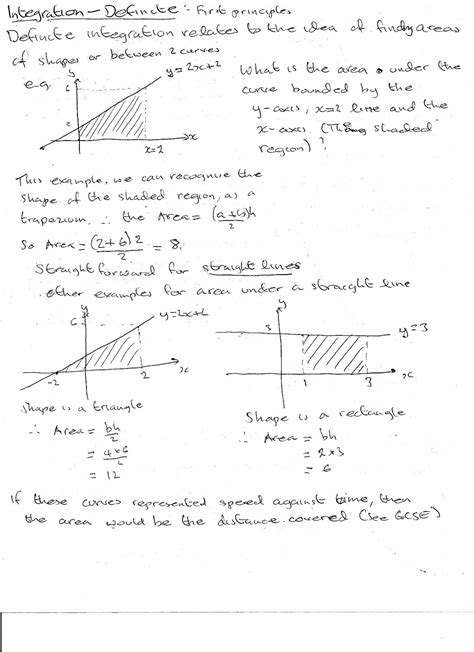 Integration – Definite :- First principles
Definite integration relates to the idea of finding areas
of shapes or between 2 curves
e.g.
y
y=2x+2
6
2
x
x=2
What is the area under the
curve bounded by the
y-axis, x=2 line and the
x-axis. (The shaded
region)?
This example, we can recognise the
shape of the shaded region, as a
trapezium. ∴ the Area = (a+b)h/2
So Area = (2+6)2/2 = 8.
Straight forward for straight lines
Other examples for area under a straight line
y
y=2x+2
6
-2
2
x
y
3
y=3
1
3
x
Shape is a triangle
∴ Area = bh/2
= 4×6/2
= 12
Shape is a rectangle
∴ Area = bh
= 2×3
= 6
If these curves represented speed against time, then
the area would be the distance covered (See GCSE)